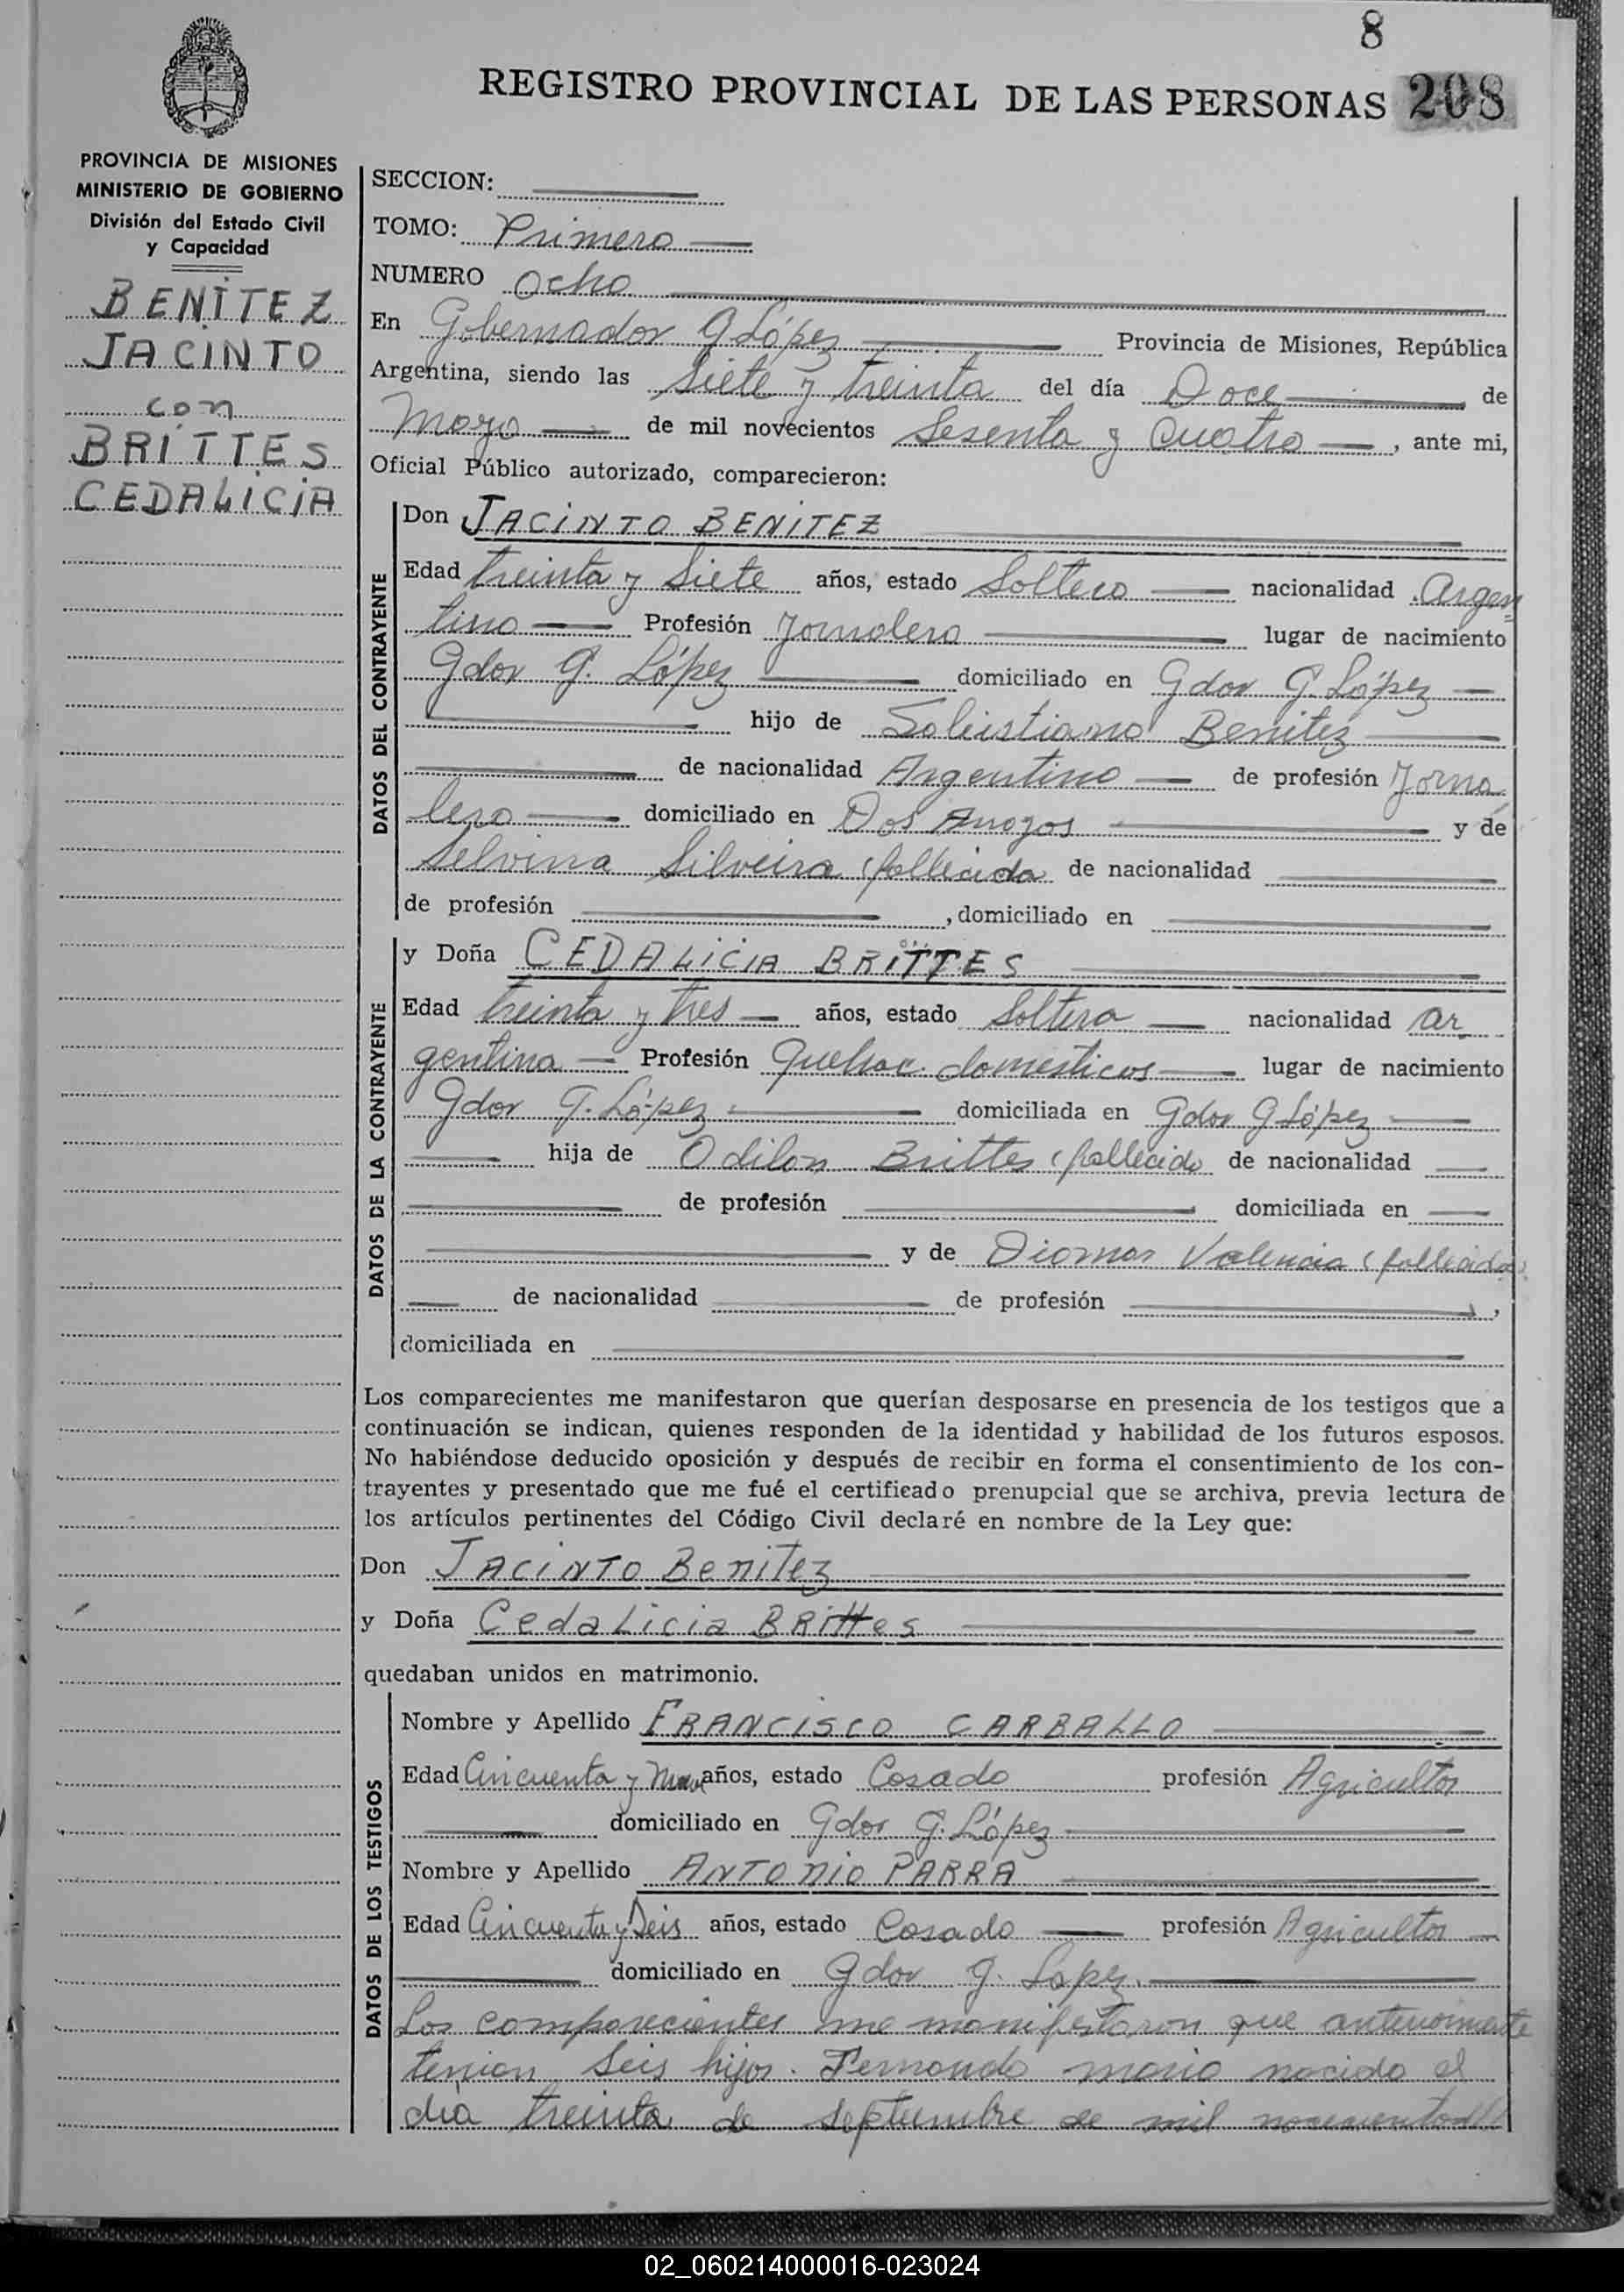 8
REGISTRO PROVINCIAL DE LAS PERSONAS 208
PROVINCIA DE MISIONES
MINISTERIO DE GOBIERNO
División del Estado Civil
y Capacidad
BENITEZ
JACINTO
con
BRITTES
CEDALICIA
SECCION:
TOMO: Primero
NUMERO Ocho
En Gobernador G López Provincia de Misiones, República
Argentina, siendo las Siete y treinta del día Doce de
Mayo de mil novecientos Sesenta y Cuatro, ante mi,
Oficial Público autorizado, comparecieron:
DATOS DEL CONTRAYENTE
Don JACINTO BENITEZ
Edad treinta y Siete años, estado Soltero nacionalidad Argen
tino Profesión Jornalero lugar de nacimiento
Gdor G. López domiciliado en Gdor G. López
hijo de Benitez
de nacionalidad Argentino de profesión Jorna
lero domiciliado en Dos y de
Selvina Silveira (fallecida de nacionalidad
de profesión , domiciliado en
DATOS DE LA CONTRAYENTE
y Doña CEDALICIA BRITTES
Edad treinta y tres años, estado Soltera nacionalidad Ar
gentina Profesión Quehac. domesticos lugar de nacimiento
Gdor G. López domiciliada en Gdor G López
hija de Odilon Brittes (fallecido de nacionalidad
de profesión domiciliada en
y de Diomar Valencia (fallecida)
de nacionalidad de profesión ,
domiciliada en
Los comparecientes me manifestaron que querían desposarse en presencia de los testigos que a
continuación se indican, quienes responden de la identidad y habilidad de los futuros esposos.
No habiéndose deducido oposición y después de recibir en forma el consentimiento de los con-
trayentes y presentado que me fué el certificado prenupcial que se archiva, previa lectura de
los artículos pertinentes del Código Civil declaré en nombre de la Ley que:
Don JACINTO Benitez
y Doña Cedalicia BRittes
quedaban unidos en matrimonio.
DATOS DE LOS TESTIGOS
Nombre y Apellido FRANCISCO CARBALLO
Edad Cincuenta y Nueve años, estado Casado profesión Agricultor
domiciliado en Gdor G. López
Nombre y Apellido ANTONIO PARRA
Edad Cincuenta y Seis años, estado Casado profesión Agricultor
domiciliado en Gdor G. Lopez.
Los comparecientes me manifestaron que anteriormente
tenian Seis hijos. Fernando mario nacido el
dia treinta de septiembre de mil novecientos///
02_060214000016-023024